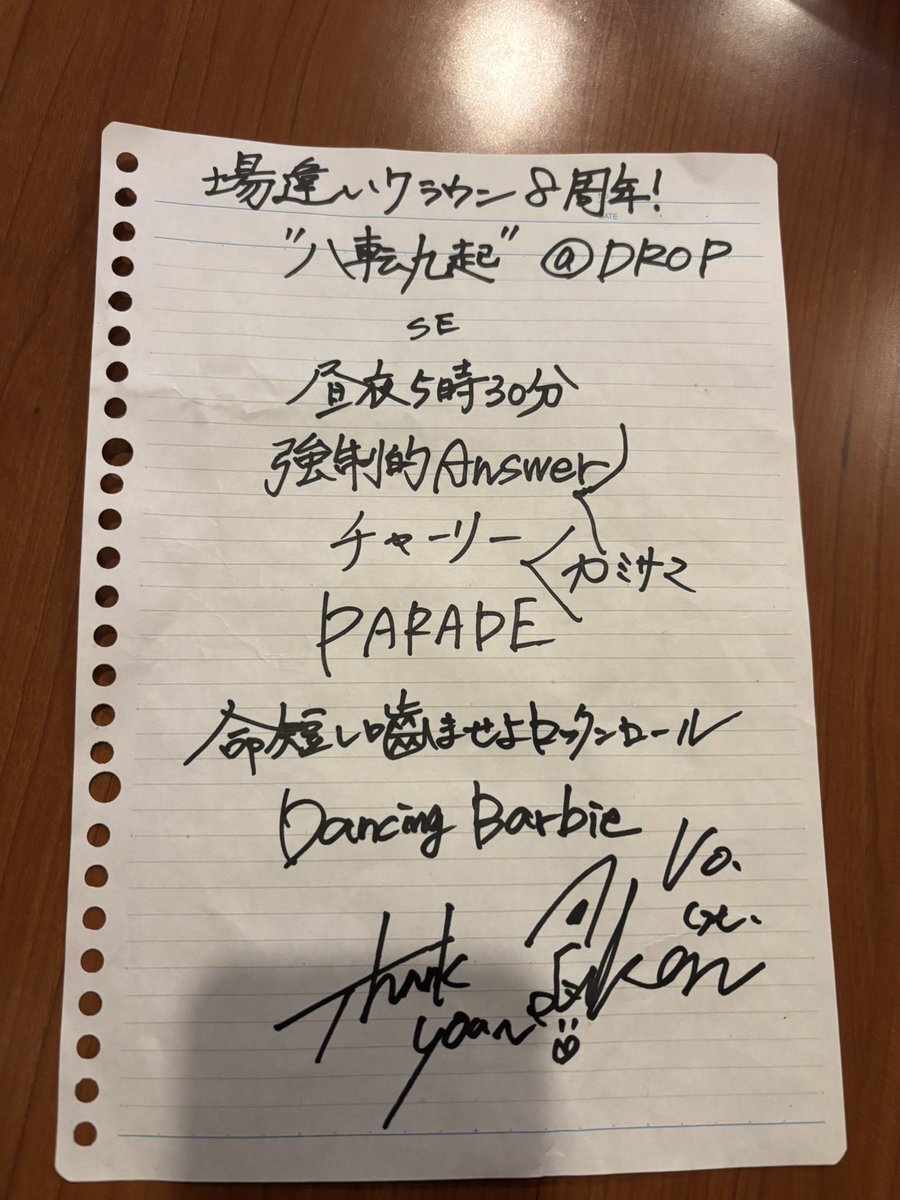 場違いクラウン8周年!
DATE
"八転九起" @DROP
SE
昼夜5時30分
強制的Answer
チャーリー
カミサマ
PARADE
命短し噛ませよロックンロール
Dancing Barbie
Vo.
Gt.
Thank
Ken